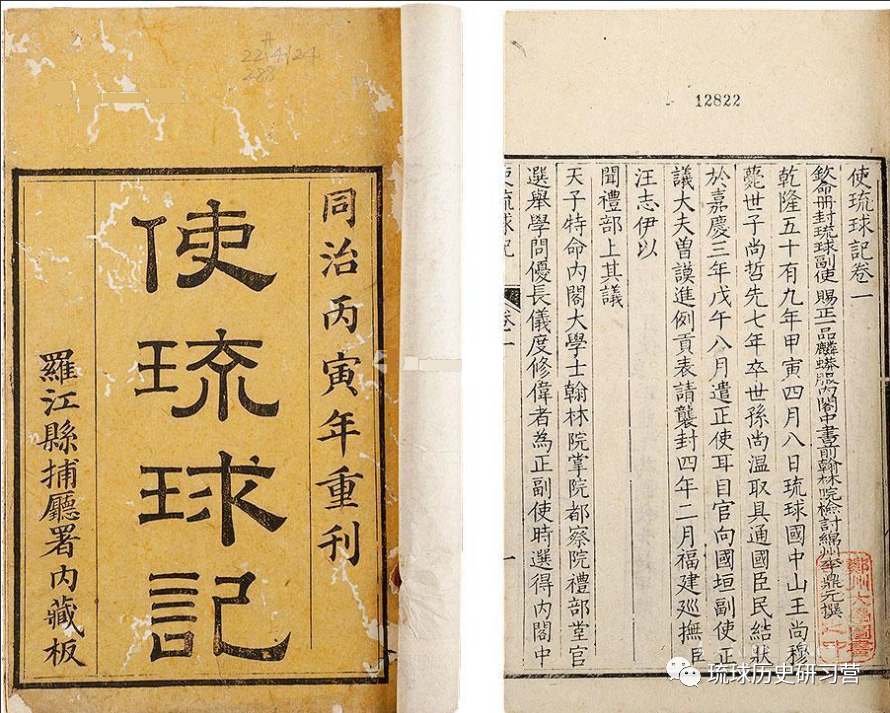 同治丙寅年重刊
使琉球記
羅江縣捕廳署內藏板
12822
使琉球記卷一
欽命冊封琉球副使 賜正一品麟蟒服內閣中書前翰林院檢討綿州李鼎元撰
乾隆五十有九年甲寅四月八日琉球國中山王尚穆
薨世子尚哲先七年卒世孫尚溫取具通國臣民結狀
於嘉慶三年戊午八月遣正使耳目官向國垣副使正
議大夫曾謨進例貢表請襲封四年二月福建廵撫臣
汪志伊以
聞禮部上其議
天子特命內閣大學士翰林院掌院都察院禮部堂官
選舉學問優長儀度修偉者為正副使時選得內閣中
使琉球記 卷一 一
琉球历史研习营